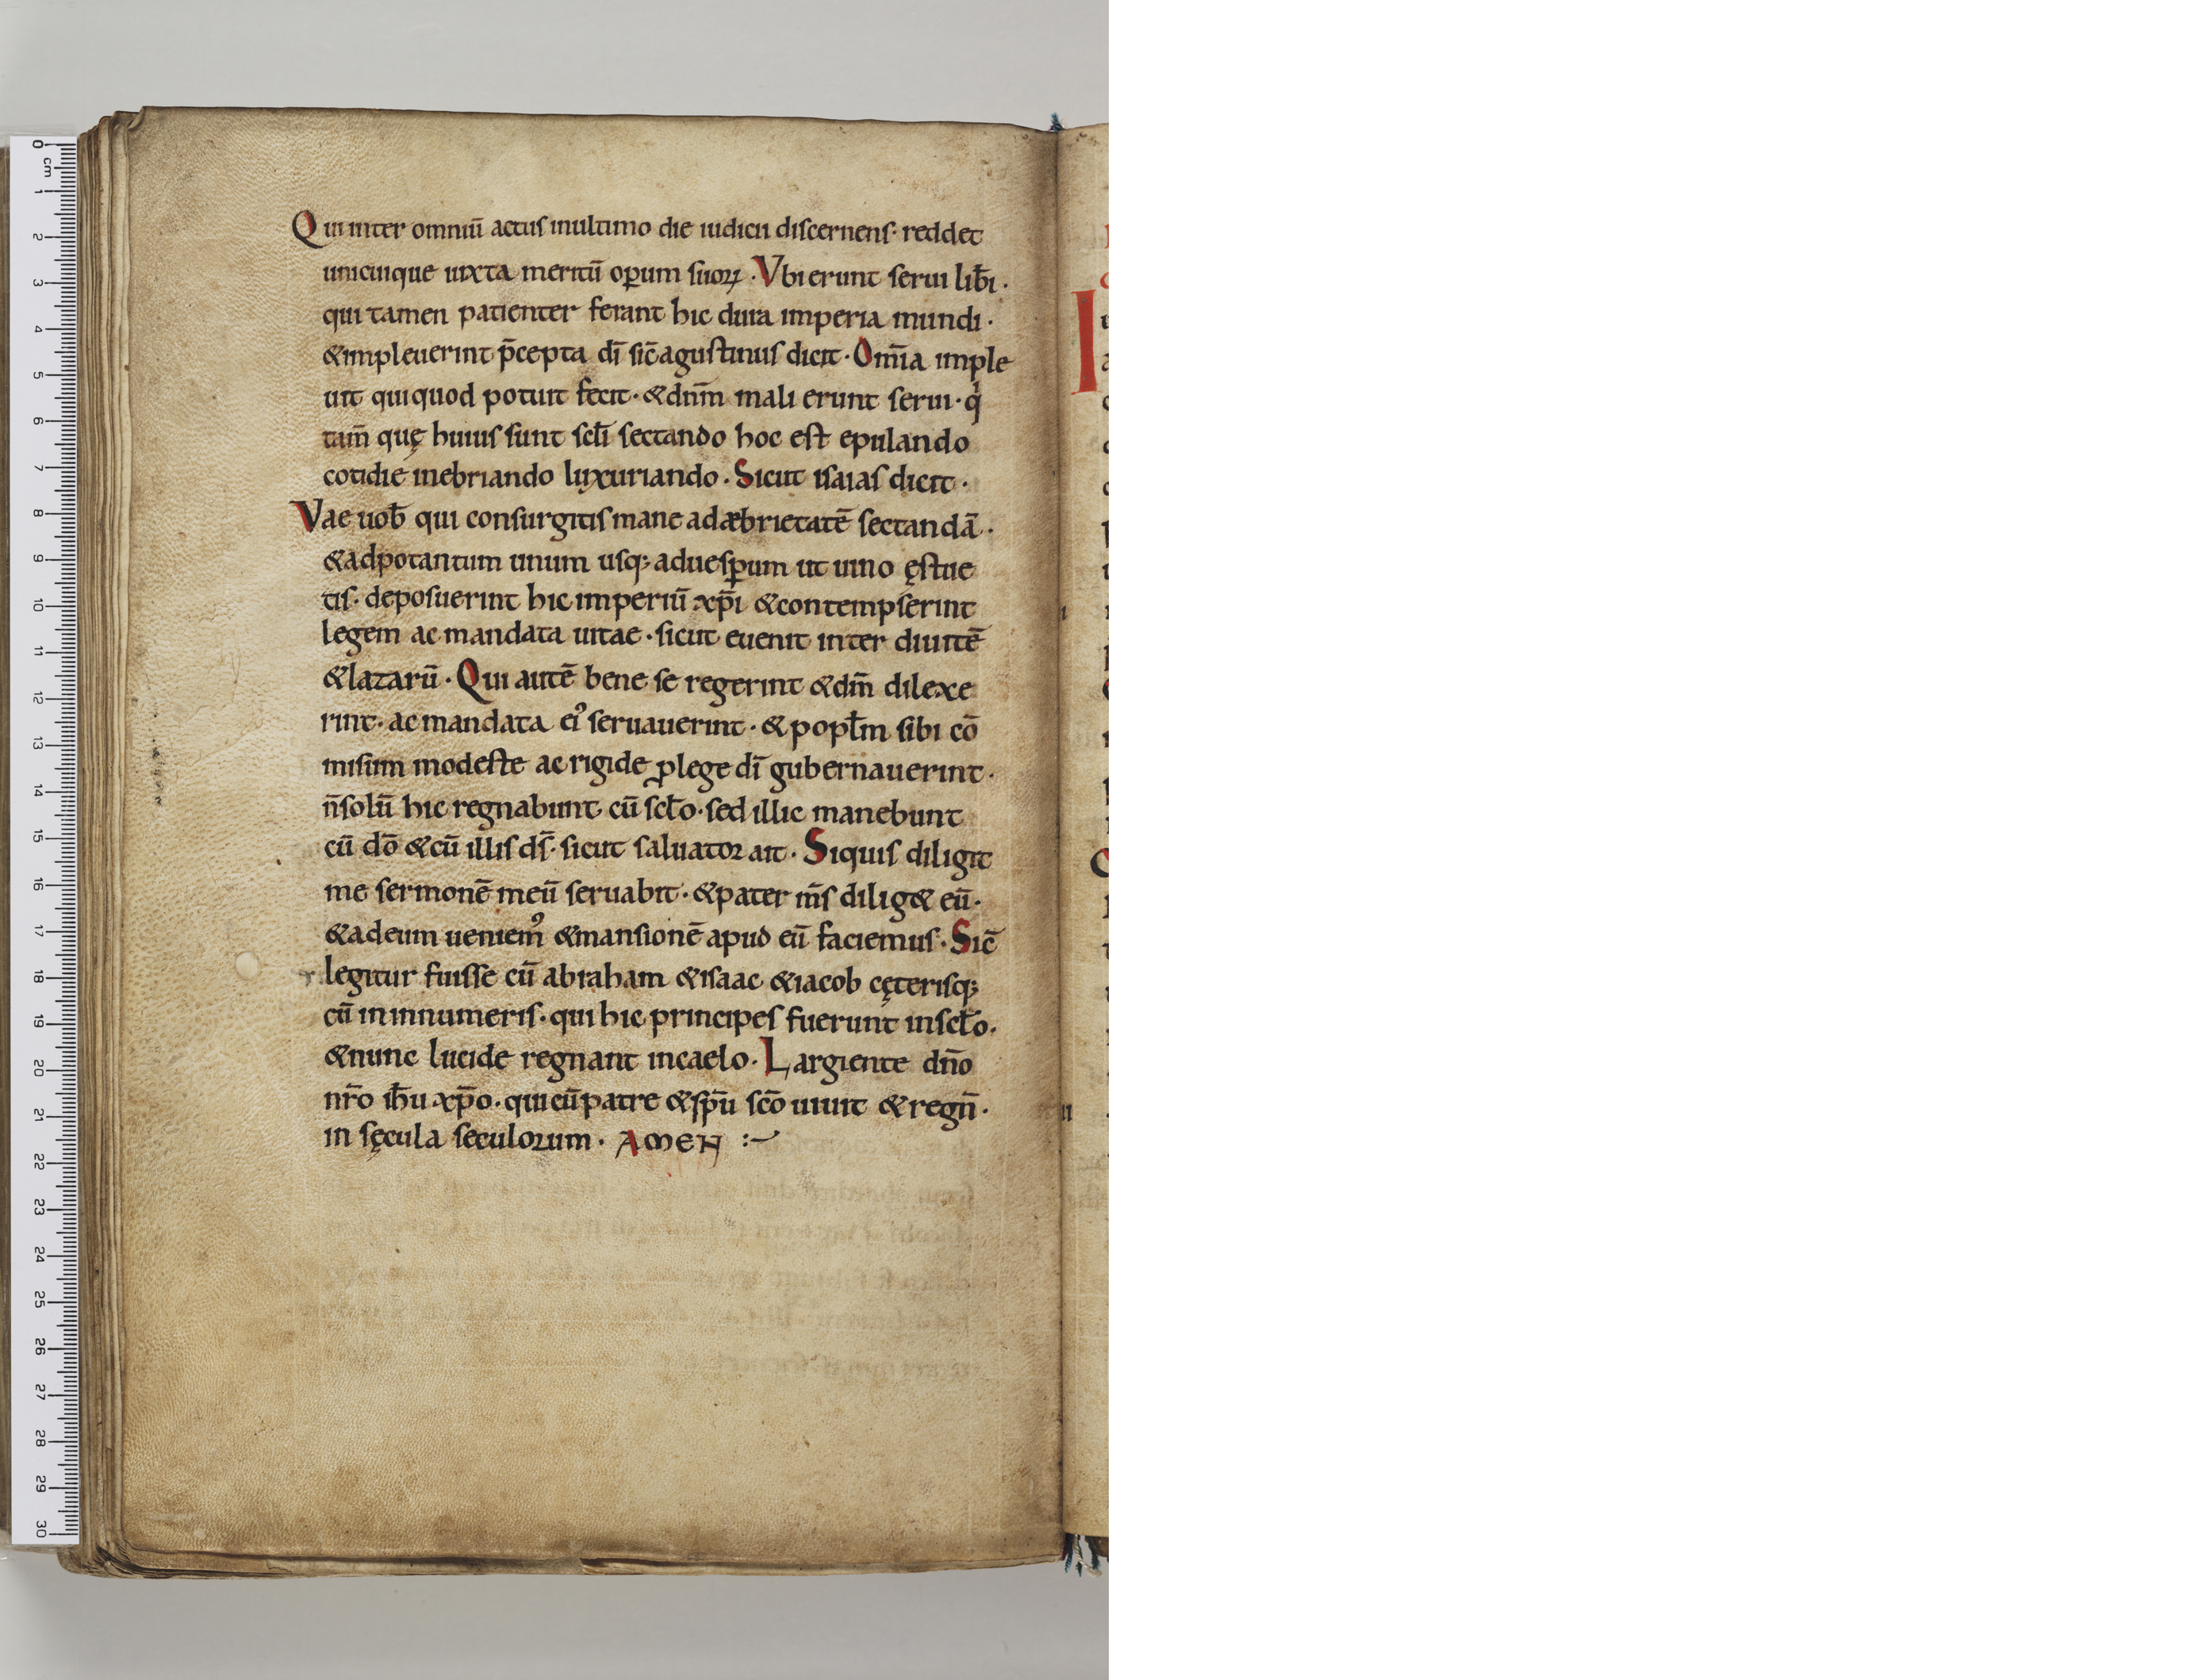 Qui inter omniũ actus inultimo die iudicii discernens· reddet
unicuique iuxta meritũ oꝑum suoꝝ· Vbi erunt serui lib̄i·
qui tamen patienter ferant hic dura imperia mundi·
&impleuerint p̄cepta dī sic̄ agustinus dicit· Om̄ia imple
uit qui quod potuit fecit· &dnm̄ mali erunt serui· qͥ
tam̄ quę huius sunt scłi sectando hoc est epulando
cotidie inebriando luxuriando· Sicut isaias dicit·
Vae uob̄ qui consurgitis mane adæbrietatē sectandā·
&adpotantum unum usq; aduesꝑum ut uino ęstue
tis· deposuerint hic imperiũ xp̄i &contempserint
legem ac mandata uitae· sicut euenit inter diuitē
&lazarũ· Qui autē bene se regerint &dm̄ dilexe
rint· ac mandata ei᾿ seruauerint· & popłm sibi cō
misum modeste ac rigide ꝓlege dī gubernauerint·
n̄solũ hic regnabunt cũ scło· sed illic manebunt
cũ dō &cũ illis ds̄· sicut saluator ait· Siquis diligit
me sermonē meũ seruabit· &pater m̄s dilig& eũ·
&adeum ueniem᾿ &mansionē apud eũ faciemus· Sic̄
legitur fuisse cũ abraham &isaac &iacob cęterisq;
cũ in innumeris· qui hic principes fuerunt inscło·
&nunc lucide regnant incaelo· Largiente dño
nr̄o ih̄u xp̄o· qui cũ patre &sp̄u scō uiuit &regn̄·
in sęcula seculorum· AMEN :~
0 cm
1
2
3
4
5
6
7
8
9
10
11
12
13
14
15
16
17
18
19
20
21
22
23
24
25
26
27
28
29
30